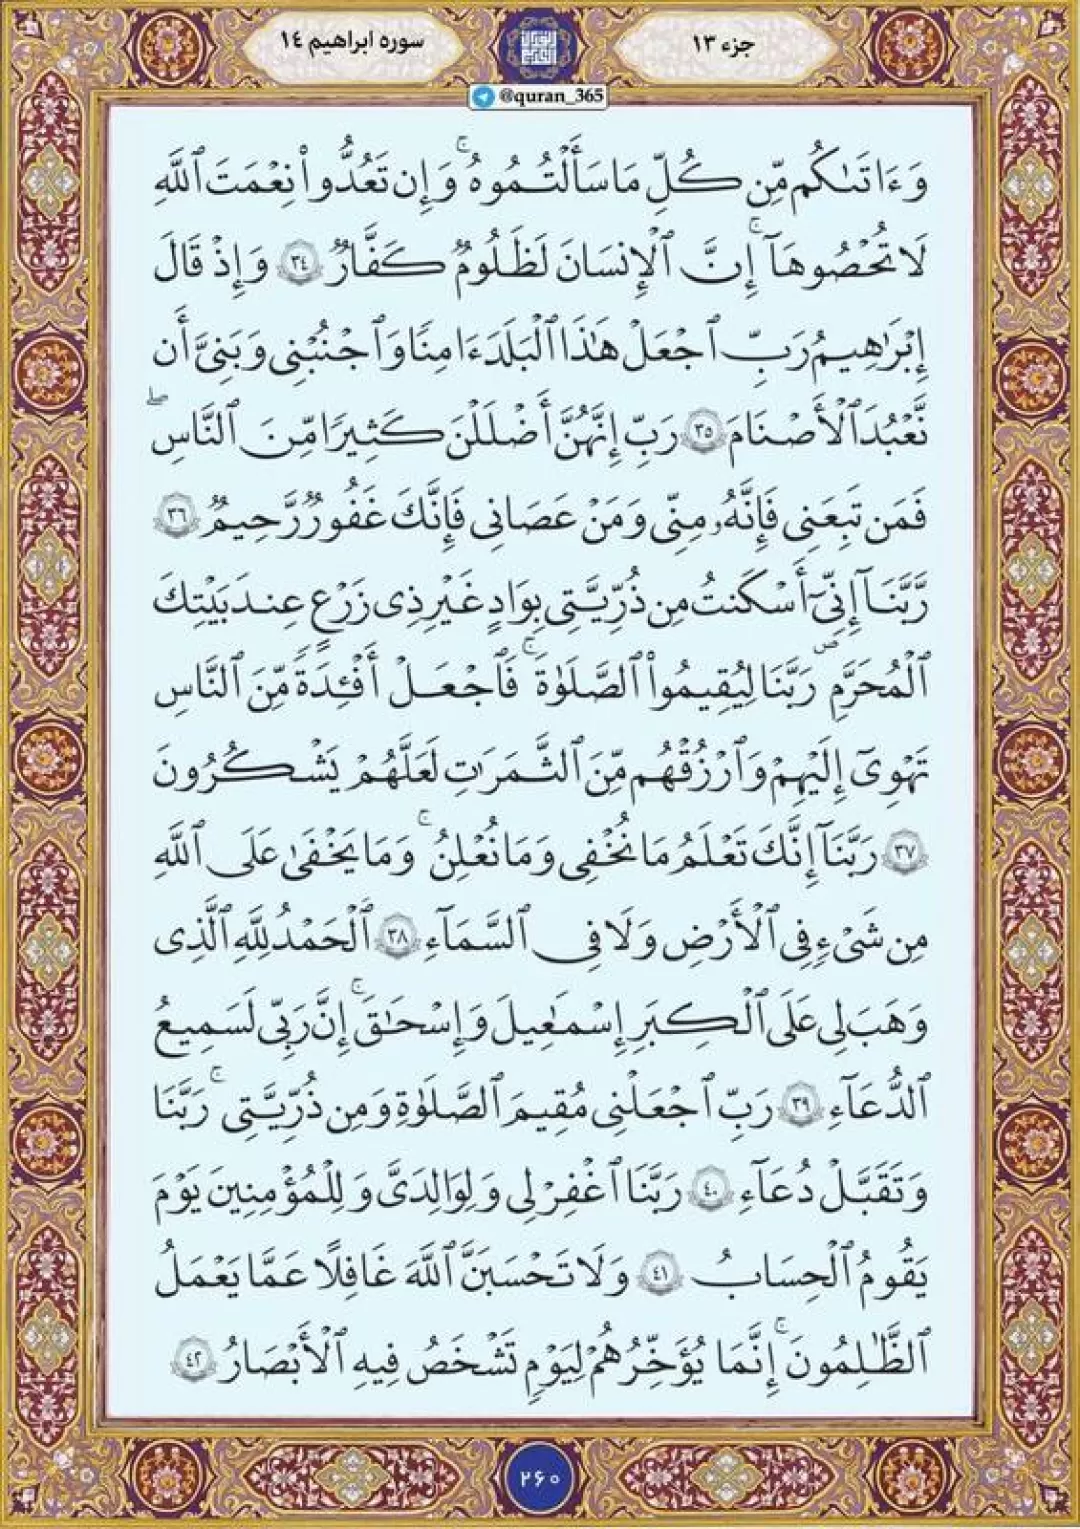 جزء ۱۳
سوره ابراهیم ۱٤
@quran_365
وَءَاتَىٰكُم مِّن كُلِّ مَا سَأَلْتُمُوهُ ۚ وَإِن تَعُدُّوا۟ نِعْمَتَ ٱللَّهِ
لَا تُحْصُوهَآ ۗ إِنَّ ٱلْإِنسَانَ لَظَلُومٌ كَفَّارٌ ٣٤ وَإِذْ قَالَ
إِبْرَٰهِيمُ رَبِّ ٱجْعَلْ هَٰذَا ٱلْبَلَدَ ءَامِنًا وَٱجْنُبْنِى وَبَنِىَّ أَن
نَّعْبُدَ ٱلْأَصْنَامَ ٣٥ رَبِّ إِنَّهُنَّ أَضْلَلْنَ كَثِيرًا مِّنَ ٱلنَّاسِ ۖ
فَمَن تَبِعَنِى فَإِنَّهُۥ مِنِّى وَمَنْ عَصَانِى فَإِنَّكَ غَفُورٌ رَّحِيمٌ ٣٦
رَّبَّنَآ إِنِّىٓ أَسْكَنتُ مِن ذُرِّيَّتِى بِوَادٍ غَيْرِ ذِى زَرْعٍ عِندَ بَيْتِكَ
ٱلْمُحَرَّمِ رَبَّنَا لِيُقِيمُوا۟ ٱلصَّلَوٰةَ ۚ فَٱجْعَلْ أَفْـِٔدَةً مِّنَ ٱلنَّاسِ
تَهْوِىٓ إِلَيْهِمْ وَٱرْزُقْهُم مِّنَ ٱلثَّمَرَٰتِ لَعَلَّهُمْ يَشْكُرُونَ
٣٧ رَبَّنَآ إِنَّكَ تَعْلَمُ مَا نُخْفِى وَمَا نُعْلِنُ ۚ وَمَا يَخْفَىٰ عَلَى ٱللَّهِ
مِن شَىْءٍ فِى ٱلْأَرْضِ وَلَا فِى ٱلسَّمَآءِ ٣٨ ٱلْحَمْدُ لِلَّهِ ٱلَّذِى
وَهَبَ لِى عَلَى ٱلْكِبَرِ إِسْمَٰعِيلَ وَإِسْحَٰقَ ۚ إِنَّ رَبِّى لَسَمِيعُ
ٱلدُّعَآءِ ٣٩ رَبِّ ٱجْعَلْنِى مُقِيمَ ٱلصَّلَوٰةِ وَمِن ذُرِّيَّتِى ۚ رَبَّنَا
وَتَقَبَّلْ دُعَآءِ ٤٠ رَبَّنَا ٱغْفِرْ لِى وَلِوَٰلِدَىَّ وَلِلْمُؤْمِنِينَ يَوْمَ
يَقُومُ ٱلْحِسَابُ ٤١ وَلَا تَحْسَبَنَّ ٱللَّهَ غَافِلًا عَمَّا يَعْمَلُ
ٱلظَّٰلِمُونَ ۚ إِنَّمَا يُؤَخِّرُهُمْ لِيَوْمٍ تَشْخَصُ فِيهِ ٱلْأَبْصَارُ ٤٢
۲۶۰